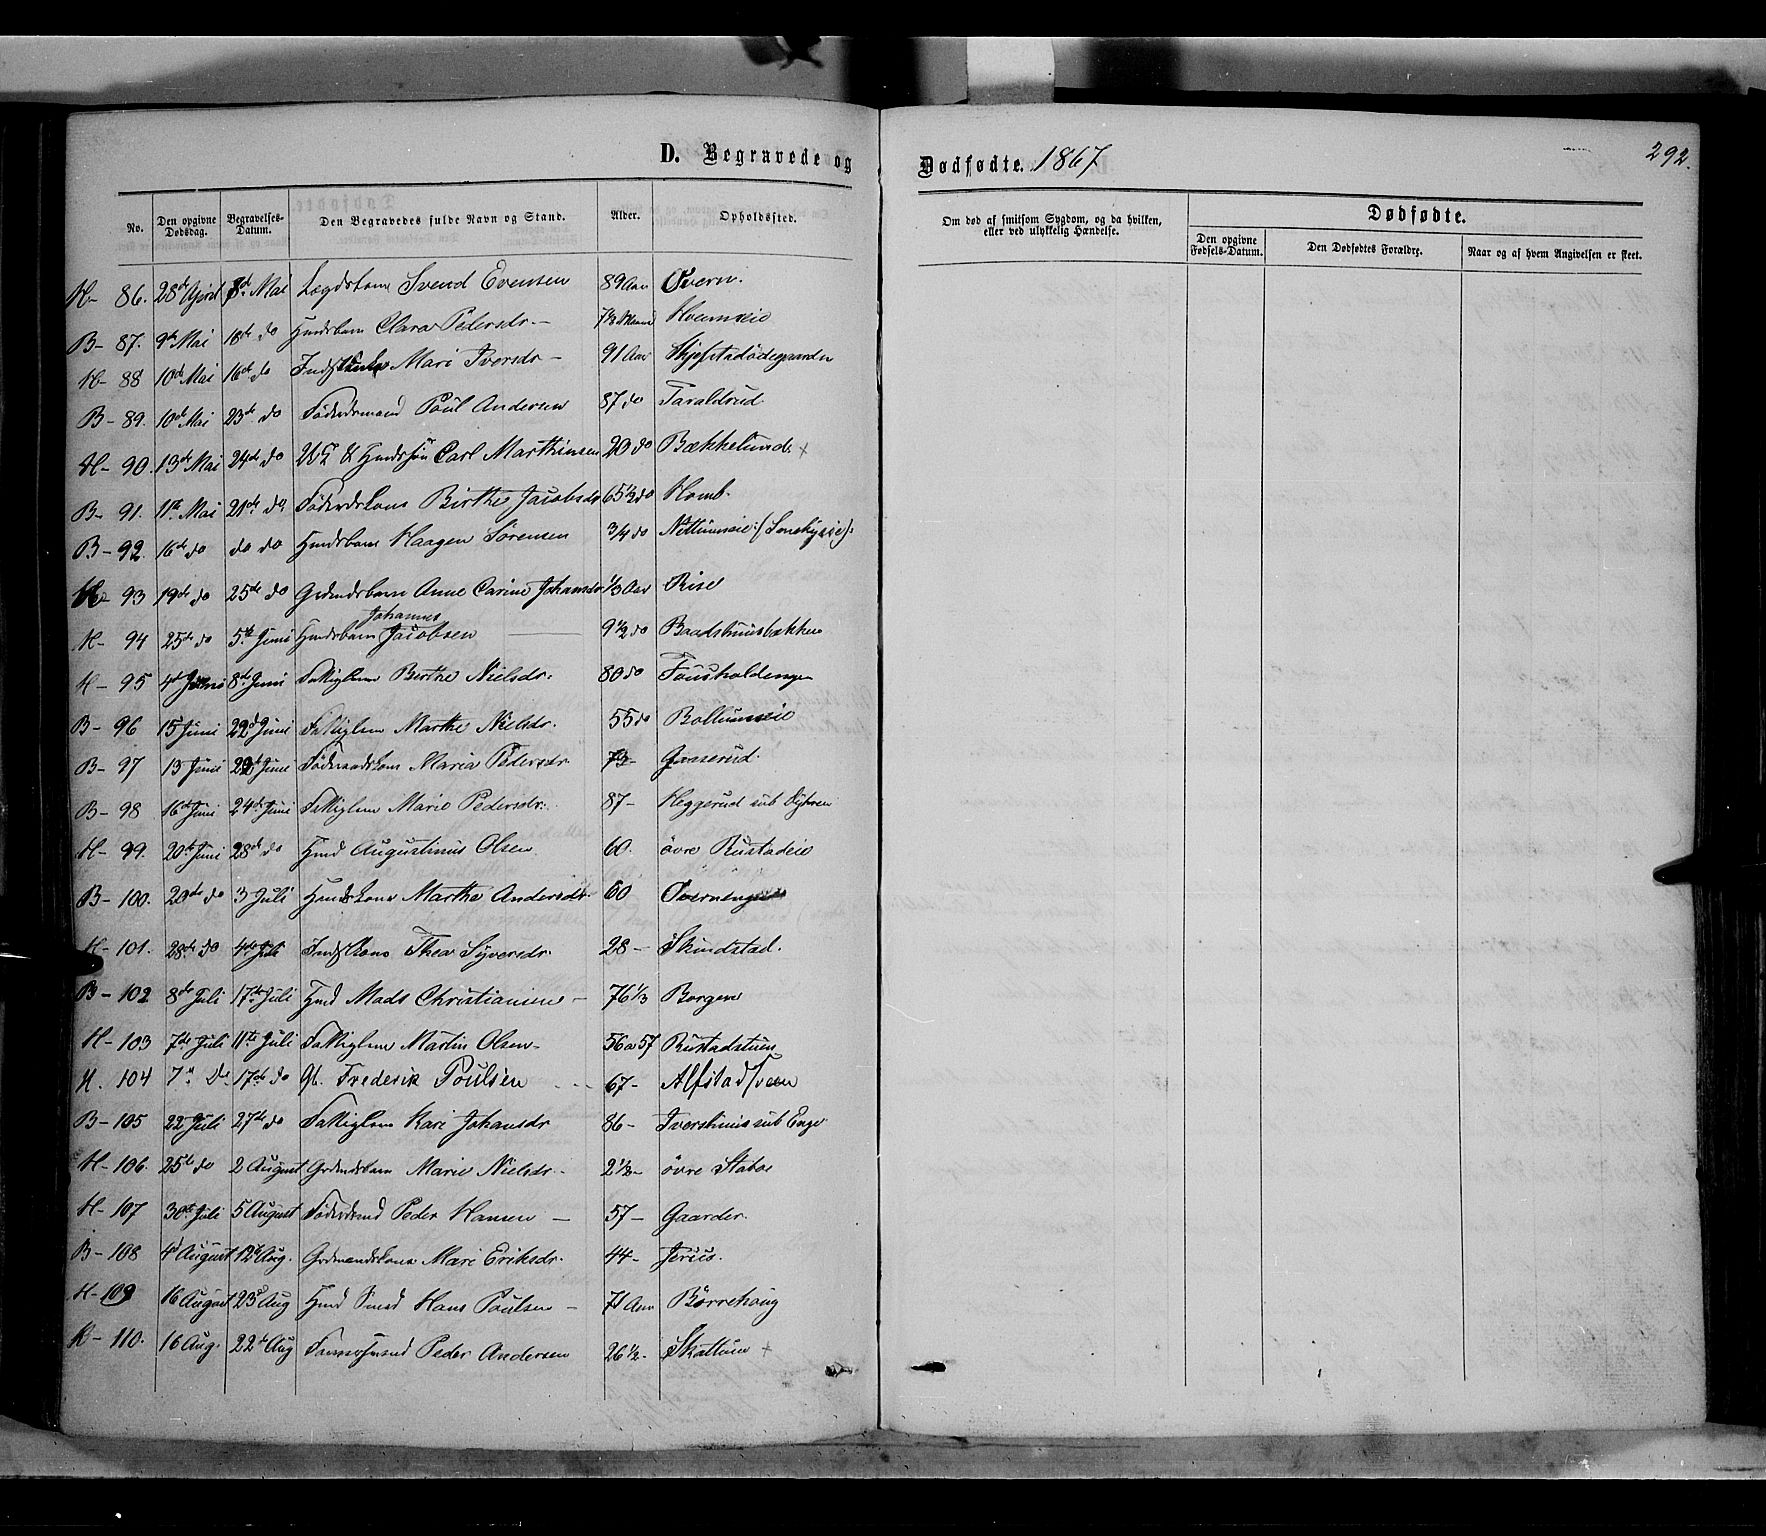 D. Begravede og Dødfødte. 1867 292.
No. Den opgivne Dødsdag. Begravelses-Datum. Den Begravedes fulde Navn og Stand. Alder. Opholdssted. Om død af smitsom Sygdom, og da hvilken, eller ved ulykkelig Hændelse. Dødfødte. Den opgivne Fødsels-Datum. Den Dødfødtes Forældre. Naar og af hvem Angivelsen er skeet.
H- 86. 28de April 3de Mai Lægdslem Svend Evensen 89 Aar Øvern.
B- 87. 9de Mai 18de do Hmdsbarn Clara Pedersdr. 7 1/2 Maaned Hvemseie
H- 88 10de Mai 16de do Mari Iversdr 91 Aar Skjefstadødegaarden
B- 89. 10de Mai 23de do Føderdsmand Poul Andersen 87 do Taraldrud
H- 90. 13de Mai 24de do Carl Marthinsen 20 do Bækkelund
B- 91. 11te Mai 21de do, Føderdskone Birthe Jacobsdr 65 1/2 do Homb.
B- 92. 16de do do do Hmdsbarn Haagen Sørensen 3/4 do
H- 93 19de do 25de do Grdmdsbarn Anne Carine Johansdr 1/3 Aar Rise
H- 94 25de do 5te Juni Hmdsbarn Johannes Jacobsen 9 1/2 do Baadshuusbækken
H- 95 4de Juni 8de Juni Fattiglem Birthe Nielsdr. 80 do
B- 96 15 Juni 22d Juni Fattiglem Marthe Nielsdr. 55 do Bollumseie
B- 97 13 Juni 22d Juni Føderaadskone Maria Pedersdr 73- Gaaserud.
B- 98 16de Juni 24de Juni Fattiglem Marie Pedersdr. 87- Heggerud sub
H- 99. 20de Juni 28de do Hmd Augustinus Olsen 60. øvre Rustadeie
B- 100. 20de do 3 Juli Hmdskone Marthe Andersdr. 60
H- 101. 28de do 4de Juli Indskone Thea Syversdr. 28- Skindstad.
B- 102 8de Juli 17de Juli Hmd Mads Christiansen - 76 1/3 Borgen
H- 103 7de Juli 11te Juli Fattiglem Martin Olsen- 56 a 57 Rustadstuen
H. 104 7de Do 17de do Frederik Poulsen 67- Alfstadsveen
B- 105 22 Juli 27de do Fattiglem Kari Johansdr 86- Ivershuus sub Enge
H- 106. 25de do 2 August Grdmdsbarn Marie Nielsdr. - 2 1/2- øvre Staboe
H- 107 30te Juli 5 August Føderdmd Peder Hansen - 57- Gaarder.
B- 108 4d August 12te Aug. Grdmandskone Mari Eriksdr. 44-
H- 109 16 August 23d Aug Hmd Smed Hans Poulsen - 71 Aar Børrehaug
H- 110. 16 Aug. 22de Aug Peder Andersen 26 1/2- Skattum